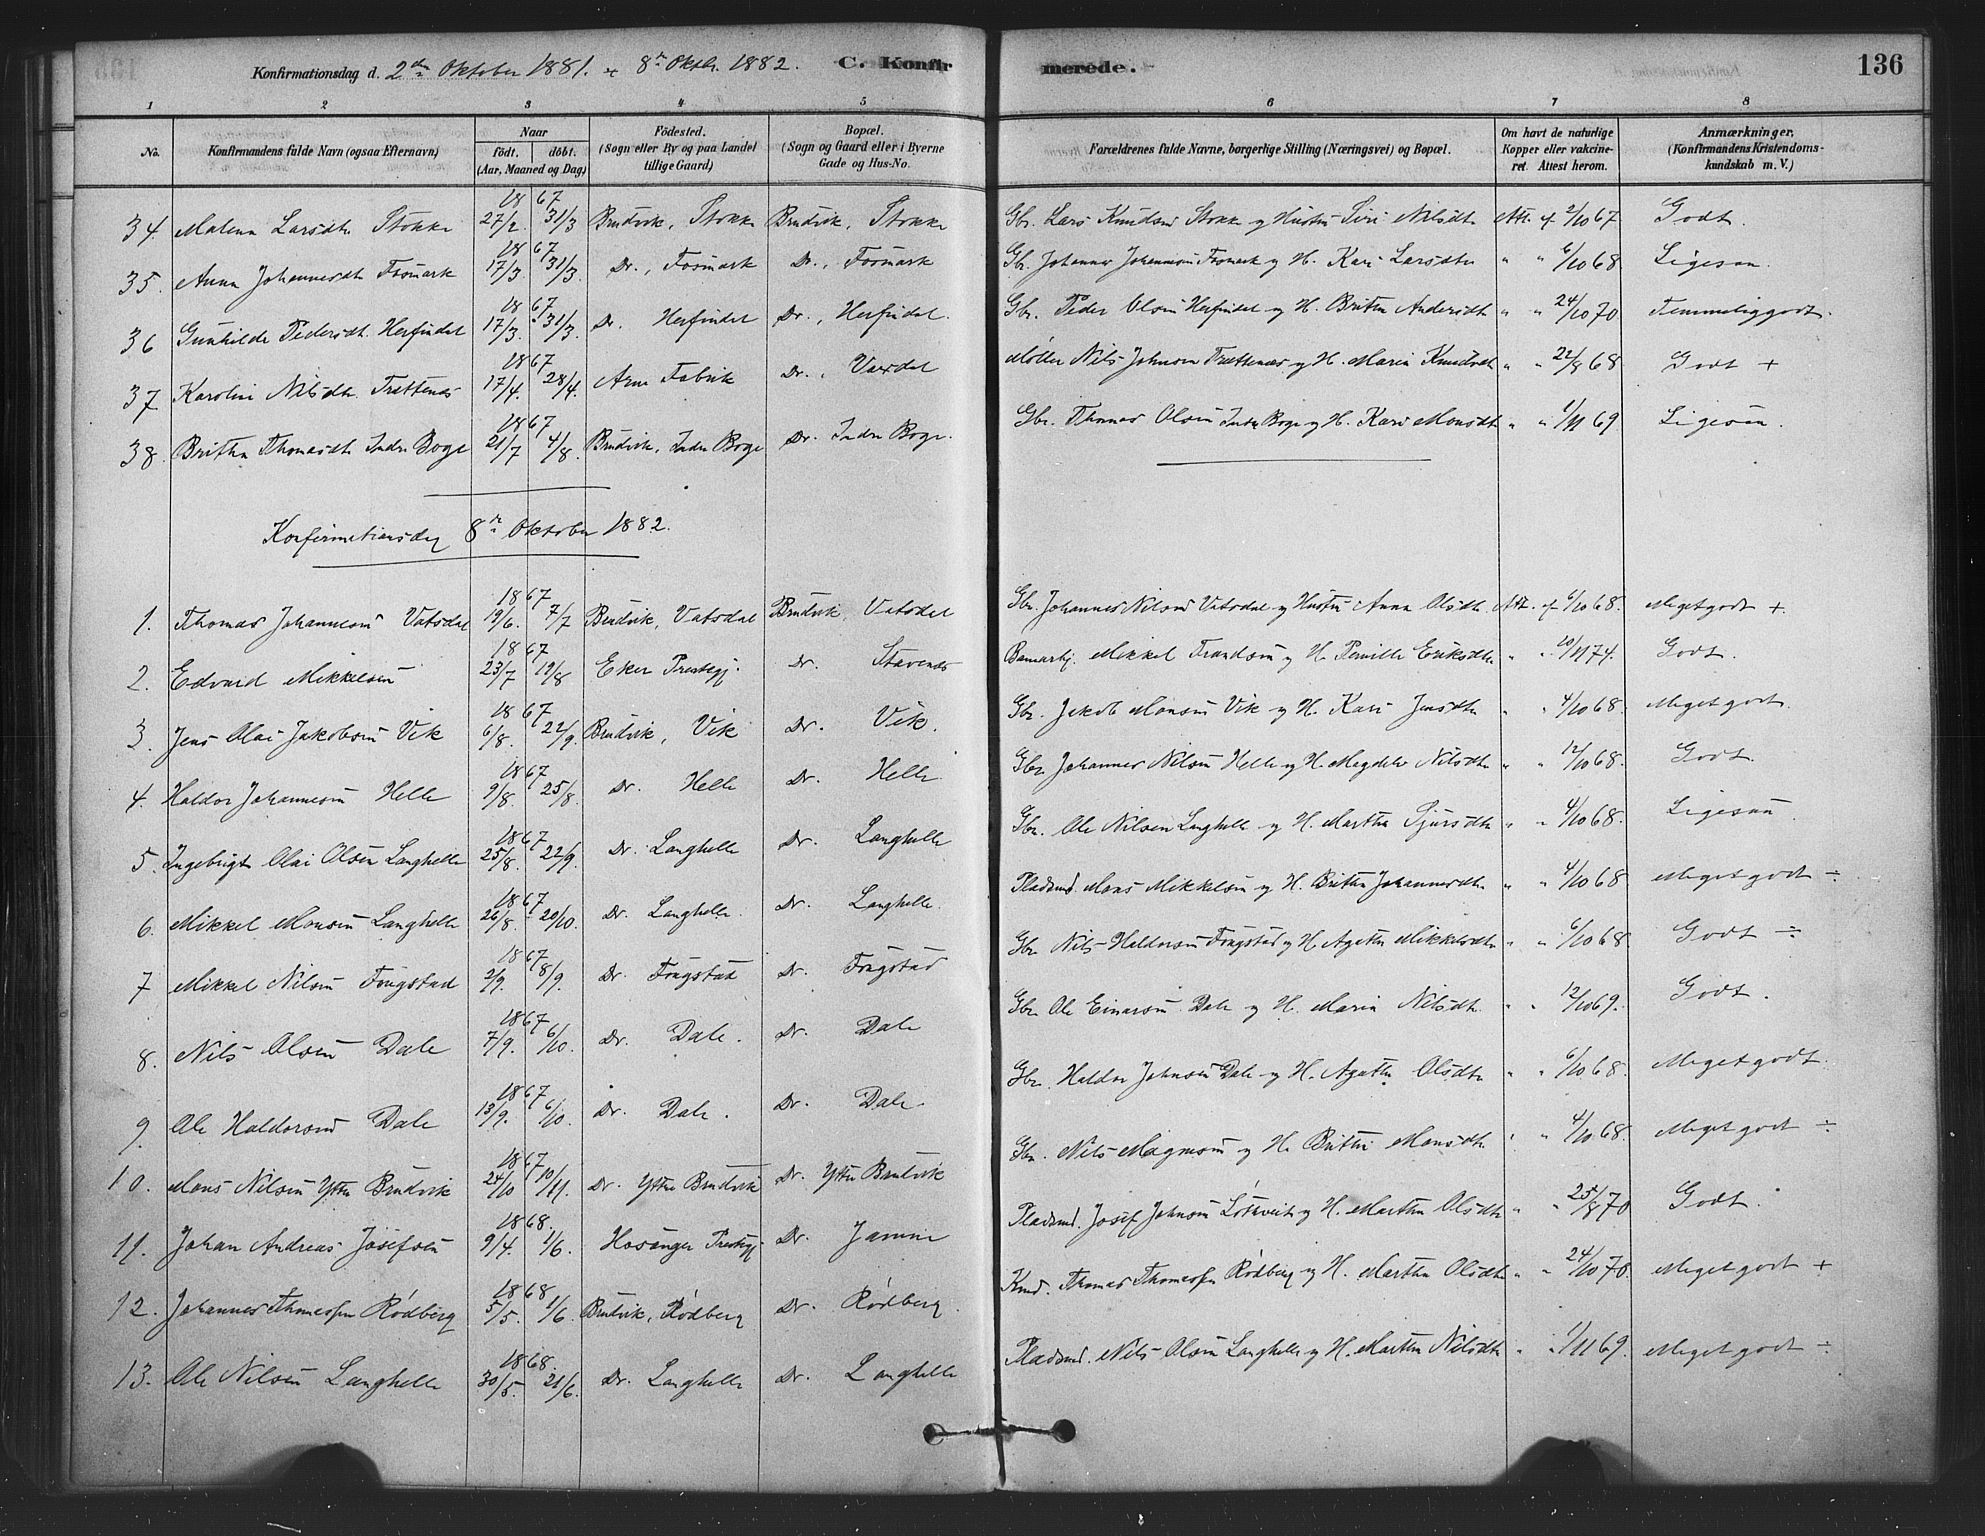 Konfirmationsdag d. 2den Oktober 1881. & 8de Oktbr. 1882. C. Konfirmerede. 136
1 2 3 4 5 6 7 8
No. Konfirmandens fulde Navn (ogsaa Efternavn) Naar födt. döbt. (Aar, Maaned og Dag) Födested. (Sogn eller By og paa Landet tillige Gaard) Bopæl. (Sogn og Gaard eller i Byerne Gade og Hus-No. Forældrenes fulde Navne, borgerlige Stilling (Næringsvei) og Bopæl. Om havt de naturlige Kopper eller vakcineret. Attest herom. Anmærkninger, (Konfirmandens Kristendomskundskab m. V.)
34. Malena Larsdtr Stokke 1867 27/2. 31/3 Brudvik, Stokke Brudvik, Stokke Gbr. Lars Knudsen Stokke og Hustru Siri Nilsdtr Att. af 2/10 67 Godt.
35. Anna Johannesdtr Fosmark 1867 17/3 31/3. Do., Fosmark Do., Fosmark Gbr. Johannes Johannesen Fosmark og H. Kari Larsdtr " " 6/10 68 Ligesaa.
36 Gunhilde Pedersdtr. Herfindal 1867 17/3. 31/3. Do. Herfindal Do., Herfindal. Gbr. Peder Olsen Herfindal og H. Britha Andersdtr " " 24/10 70 Temmelig godt.
37 Karolini Nilsdtr. Trættenæs 1867 17/4. 28/4. Arne Fabrik Do., Vaxdal Møller Nils Johnsen Trættenæs og H. Maria Knudsdtr " " 22/8 68 Godt +
38. Britha Thomasdtr Indre Boge 1867 21/7 4/8. Brudvik, Indre Boge Do. Indre Boge. Gbr. Thomas Olsen Indre Boge og H. Kari Monsdtr " " 1/11 69 Ligesaa.
Konfirmationsdag 8de Oktober 1882.
1. Thomas Johannesen Vatsdal 1867 19/6. 7/7 Brudvik, Vatsdal Brudvik, Vatsdal Gbr. Johannes Nilsen Vatsdal og Hustru Anna Olsdtr Att. af 6/10 68. Meget godt +.
2. Edvard Mikkelsen 1867 23/7 19/8 Eker Prestegj. Do. Stavenes Mikkel Trondsen og H. Pernille Eriksdtr " " 20/11 74. Godt.
3. Jens Olai Jakobsen Vik 1867 6/8. 22/9. Brudvik, Vik Do. Vik. Gbr. Jakob Monsen Vik og H. Kari Jensdtr " " 4/10 68. Meget godt.
4. Haldor Johannesen Helle 1867 9/8. 25/8. Do. Helle Do. Helle Gbr. Johannes Nilsen Helle og H. Magdela Nilsdtr " " 12/10 68. Godt.
5. Ingebrigt Olai Olsen Langhelle 1867 25/8. 22/9. Do. Langhelle Do. Langhelle Gbr. Ole Nilsen Langhelle og H. Martha Sjursdtr " " 4/10 68. Ligesaa
6. Mikkel Monsen Langhelle 1867 26/8. 20/10. Do. Langhelle. Do. Langhelle. Pladsmd. Mons Mikkelsen og H. Britha Johannesdtr " " 4/10 68 Meget godt ÷
7 Mikkel Nilsen Fougstad 1867 2/9. 8/9. Do. Fougstad Do. Fougstad Gbr. Nils Haldorsen Fougstad og H. Agatha Mikkelsdtr " " 6/10 68 Godt ÷
8. Nils Olsen Dale 1867 7/9. 6/10. Do. Dale. Do. Dale Gbr. Ole Einarsen Dale og H. Maria Nilsdtr. " " 12/10 69. Godt.
9. Ole Haldorsen Dale 1867 13/9. 6/10. Do. Dale. Do. Dale. Gbr. Haldor Johnsen Dale og H. Agatha Olsdtr " " 6/10 68. Meget godt.
10. Mons Nilsen Ytre Brudvik 1867 24/10 10/11. Do. Ytre Brudvik Do. Ytre Brudvik Gbr. Nils Magnesen og H. Britha Monsdtr " " 4/10 68. Meget godt ÷
11. Johan Andreas Josefsen 1868. 9/4. 1/6. Hosanger Prestegj. Do. Pladsmd. Josef Johnsen og H. Martha Olsdtr " " 25/8 70 Godt.
12. Johannes Thomassen Rødberg 1868 5/5. 1/6. Brudvik, Rødberg Do. Rødberg. Thomas Thomassen Rødberg og H. Martha Olsdtr " " 24/10 70. Meget godt +
13. Ole Nilsen Langhelle 1868. 30/5. 21/6. Do. Langhelle Do. Langhelle Pladsmd. Nils Olsen Langhelle og H. Martha Nilsdtr " " 1/11 69. Meget godt ÷